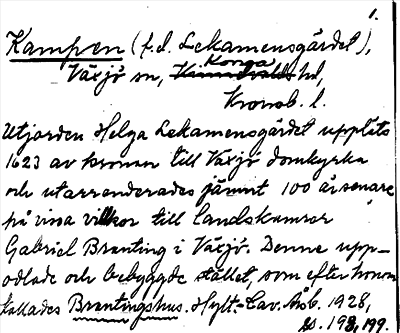 1.
Kampen (f.d. Lekamensgärdet),
Växjö sn, Konga hd,
Kronob. l.
Utjorden Helga Lekamensgärdet uppläts
1623 av kronan till Växjö domkyrka
och utarrenderades jämnt 100 år senare
på vissa villkor till landskamrer
Gabriel Branting i Växjö. Denne upp-
odlade och bebyggde stället, som efter honom
kallades Brantingshus. Hylt.-Cav. Årsb. 1928,
s. 198, 199.